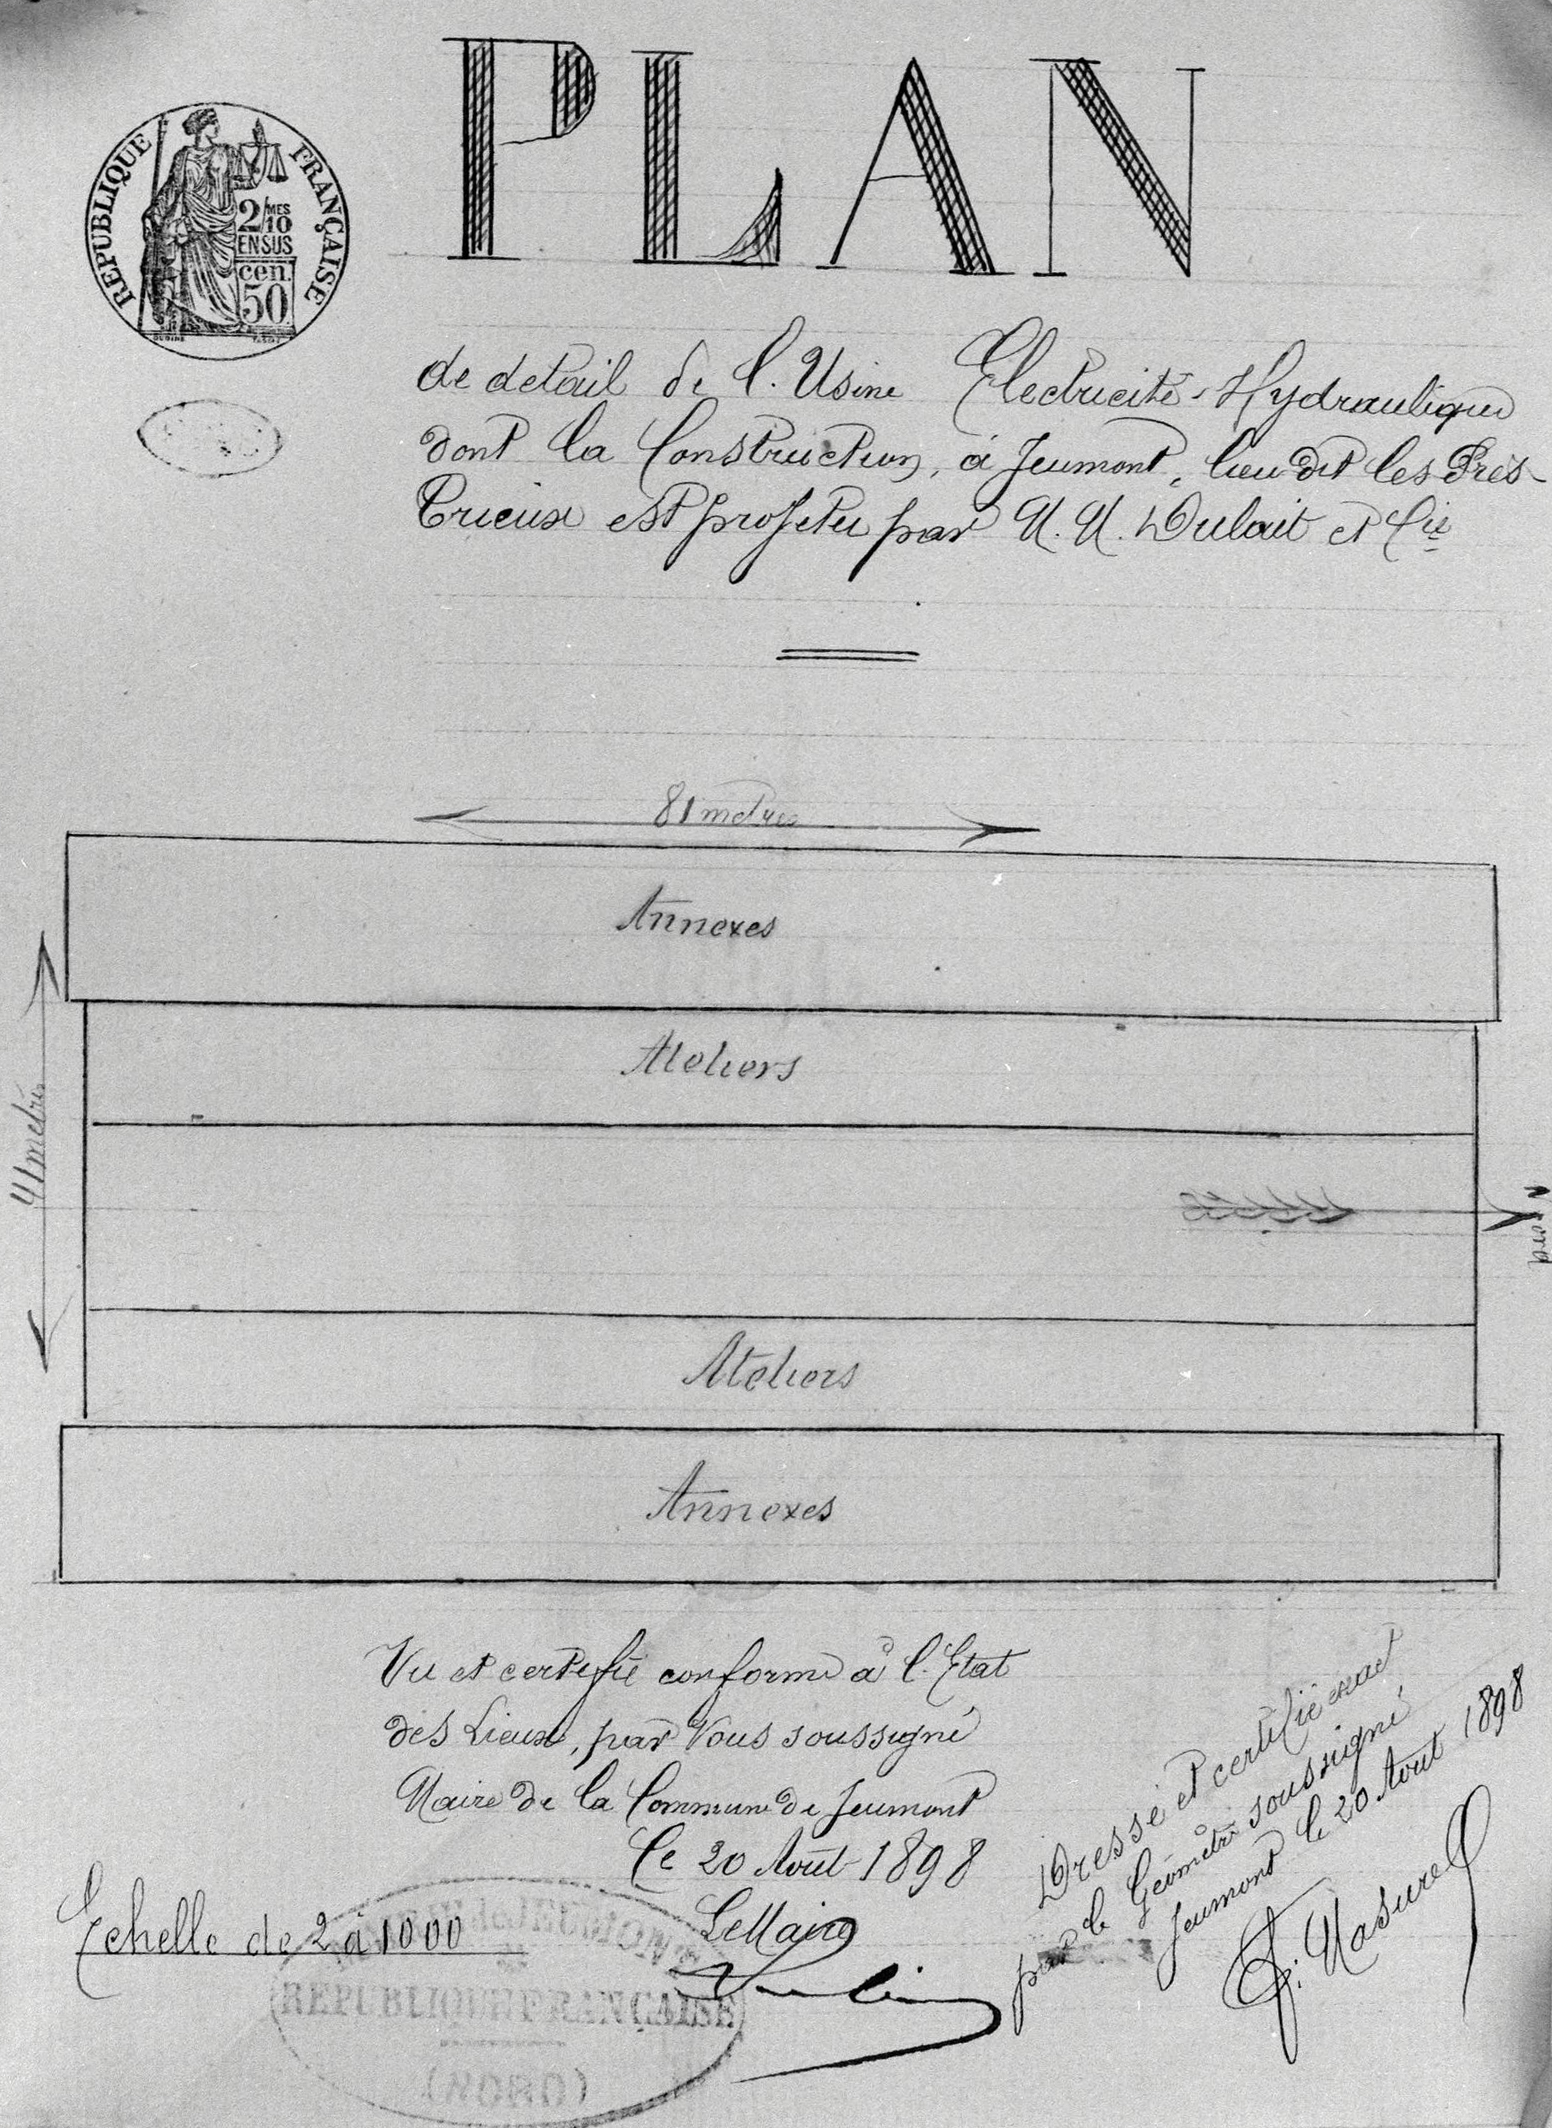 PLAN
RÉPUBLIQUE FRANÇAISE
2/10 MES
EN SUS
cen.
50
de detail de l'Usine Electricité-Hydraulique
dont la Construction, à Jeumont, lieu dit les Près-
Trieux est projetée par M. M. Dulait et Cie
81 metres
Annexes
Ateliers
41 metres
Nord
Ateliers
Annexes
Vu et certifié conforme à l'Etat
des Lieux, par Nous soussigné
Maire de la Commune de Jeumont
Le 20 Août 1898
Le Maire
Dressé et certifié exact
par le Géomètre soussigné
Jeumont le 20 Août 1898
Masurel
Echelle de 2 à 1000
de JEUMONT
RÉPUBLIQUE FRANÇAISE
(NORD)